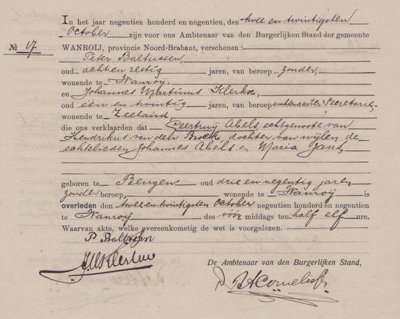 In het jaar negentien honderd en negentien, den twee en twintigsten
October zijn voor ons Ambtenaar van den Burgerlijken Stand der gemeente
№ 17 WANROIJ, provincie Noord-Brabant, verschenen:
Peter Baltussen,
oud acht en zestig jaren, van beroep zonder,
wonende te Wanroij en
Johannes Martinus Klerkx
oud een en twintig jaren, van beroep ambtenaar ter Secretarie,
wonende te Zeeland
die ons verklaarden dat Peertruij Abels echtgenoote van
Hendrikus van den Broek, dochter van wijlen de
echtelieden Johannes Abels en Maria
geboren te Bergen oud drie en negentig jaren
zonder beroep, wonende te Wanroij is
overleden den twee en twintigsten October negentien honderd en negentien
te Wanroij des vóór middags ten half elf ure.
Waarvan akte, welke overeenkomstig de wet is voorgelezen.
P. Baltussen
De Ambtenaar van den Burgerlijken Stand,